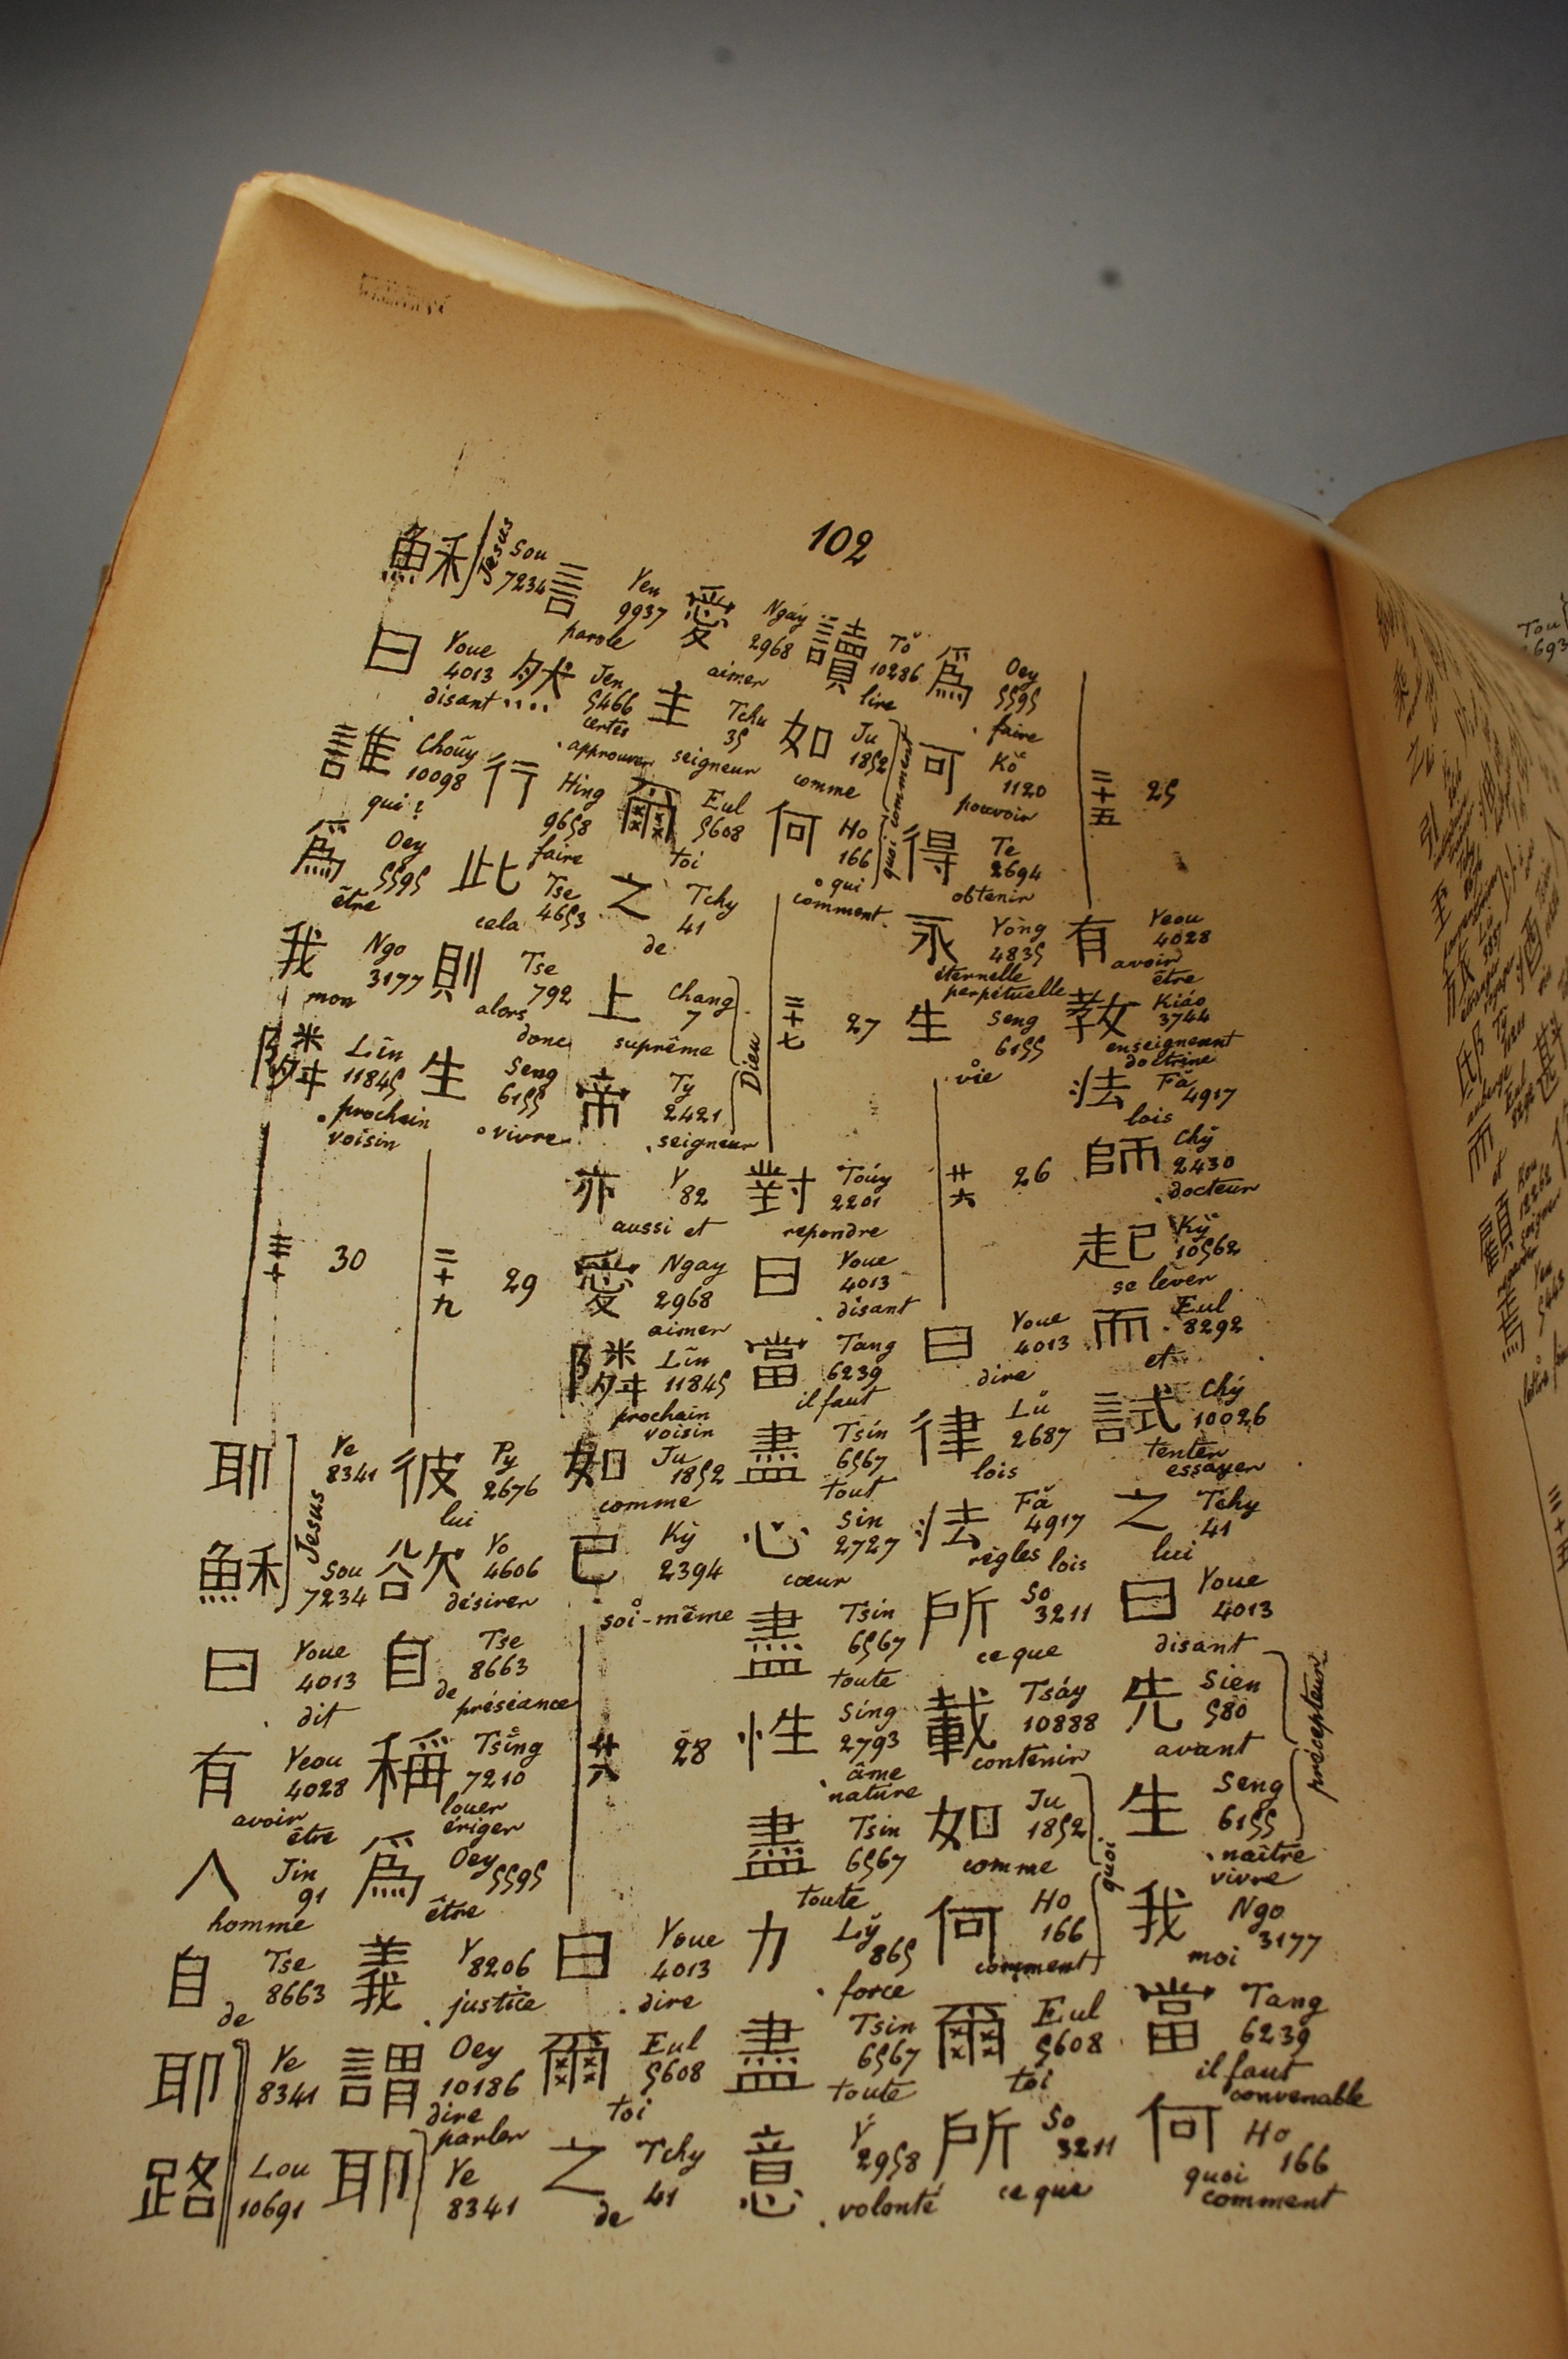 102
二十五 25
有 Yeou 4028 avoir être
教 Kiáo 3744 enseignant doctrine
法 Fă 4917 lois
師 Chȳ 2430 docteur
起 Kỳ 10562 se lever
而 Eul 8292 et
試 Chý 10026 tenter essayer
之 Tchy 41 lui
曰 Youe 4013 disant
先 Sien 580 avant
生 Seng 6155 naître vivre
précepteur
我 Ngo 3177 moi
當 Tang 6239 il faut convenable
何 Ho 166 quoi comment
爲 Oey 5595 faire
可 Kŏ 1120 pouvoir
得 Te 2694 obtenir
永 Yòng 4835 éternelle perpétuelle
生 Seng 6155 vie
廿六 26
曰 Youe 4013 dire
律 Lŭ 2687 lois
法 Fă 4917 règles lois
所 So 3211 ce que
載 Tsáy 10888 contenir
如 Ju 1852 comme
何 Ho 166 comment
quoi
爾 Eul 5608 toi
所 So 3211 ce que
讀 Tŏ 10286 lire
如 Ju 1852 comme
何 Ho 166 qui comment
quoi comment
二十七 27
對 Toúy 2201 repondre
曰 Youe 4013 disant
當 Tang 6239 il faut
盡 Tsín 6567 tout
心 Sin 2727 cœur
盡 Tsín 6567 toute
性 Síng 2793 âme nature
盡 Tsin 6567 toute
力 Lў 865 force
盡 Tsin 6567 toute
意 Ý 2958 volonté
愛 Ngáy 2968 aimer
主 Tchu 35 seigneur
爾 Eul 5608 toi
之 Tchy 41 de
上 Chang 7 suprême
帝 Ty 2421 seigneur
Dieu
亦 Y 82 aussi et
愛 Ngay 2968 aimer
隣 Lin 11845 prochain voisin
如 Ju 1852 comme
已 Kỳ 2394 soi-même
廿八 28
曰 Youe 4013 dire
爾 Eul 5608 toi
之 Tchy 41 de
言 Yen 9937 parole
然 Jen 5466 certes approuver
行 Hing 9658 faire
此 Tse 4653 cela
則 Tse 792 alors donc
生 Seng 6155 vivre
二十九 29
彼 Py 2676 lui
欲 Yo 4606 désirer
自 Tse 8663 de préséance
稱 Tsing 7210 louer ériger
爲 Oey 5595 être
義 Y 8206 justice
謂 Oey 10186 dire parler
耶 Ye 8341
穌 Sou 7234
Jesus
曰 Youe 4013 disant
誰 Choūy 10098 qui?
爲 Oey 5595 être
我 Ngo 3177 mon
隣 Lin 11845 prochain voisin
三十 30
耶 Ye 8341
穌 Sou 7234
Jesus
曰 Youe 4013 dit
有 Yeou 4028 avoir être
人 Jin 91 homme
自 Tse 8663 de
耶 Ye 8341
路 Lou 10691